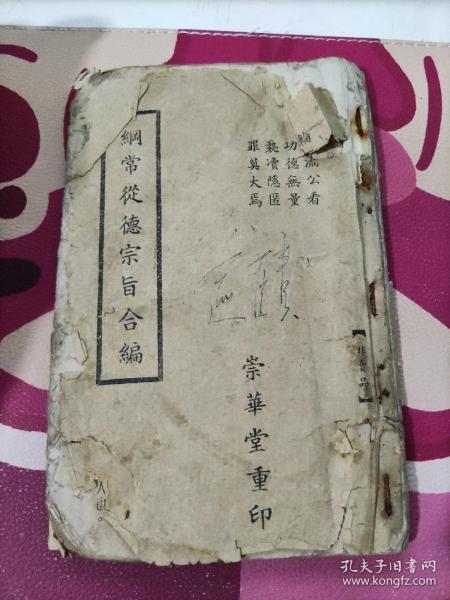 輪流公看
功德無量
褻凟隱匿
罪莫大焉
【非賣品】
綱常從德宗旨合編
崇華堂重印
人也。
孔夫子旧书网
www.kongfz.com